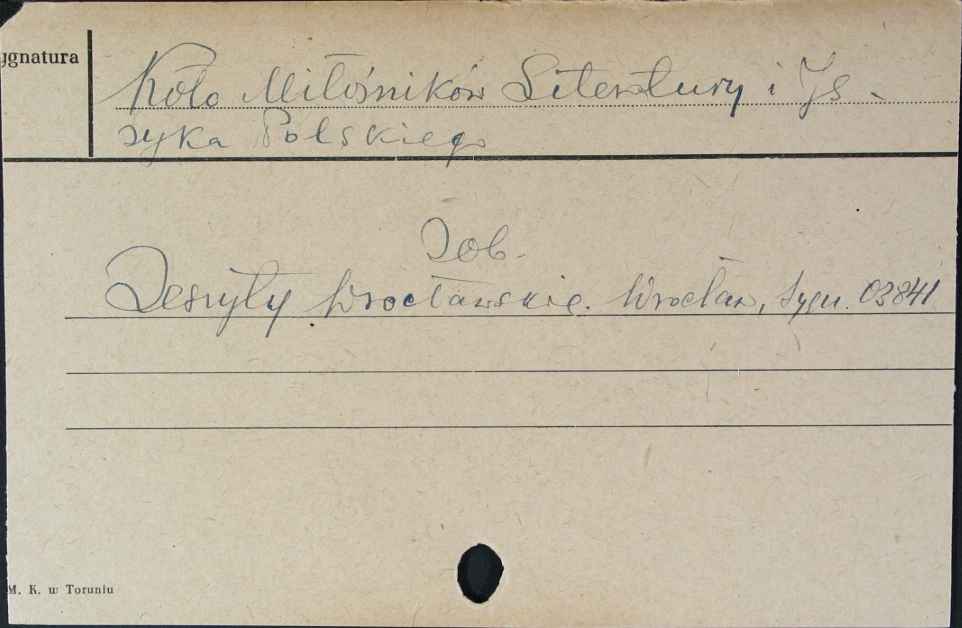 ygnatura
Koło Miłośników Literatury i Ję-
zyka Polskiego
Zob.
Zeszyty Wrocławskie. Wrocław, sygn. 03841
M. K. w Toruniu